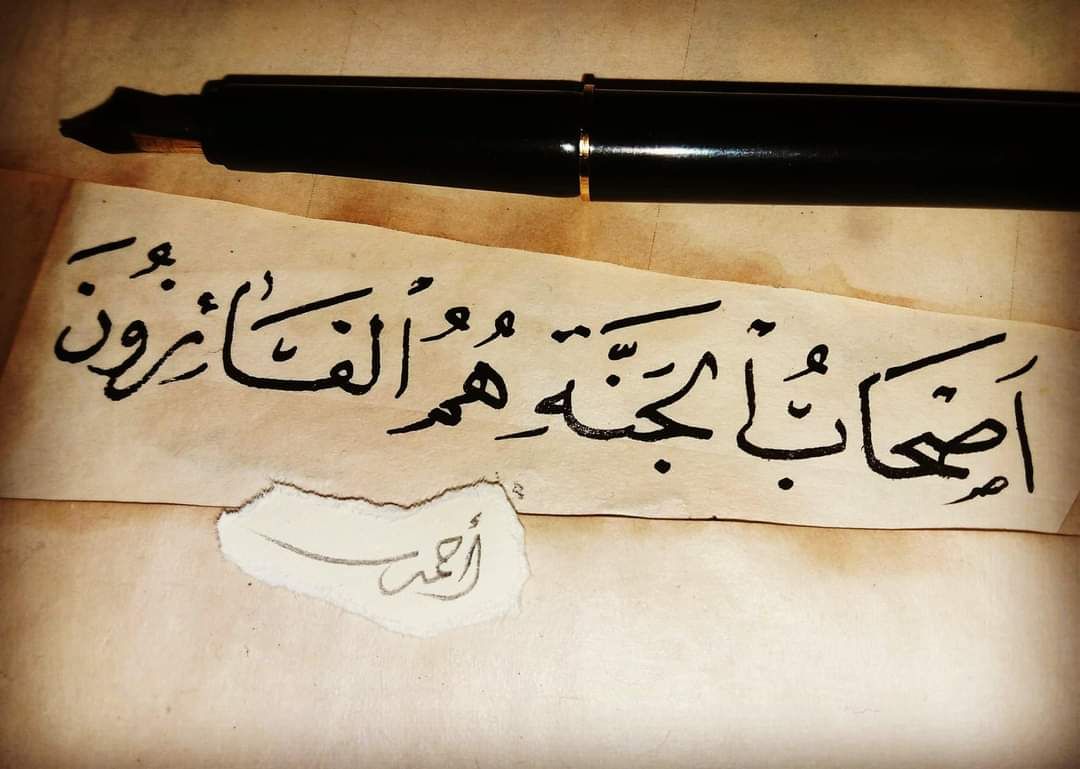 اَصْحَابُ ٱلْجَنَّةِ هُمُ ٱلْفَآئِزُونَ
أحمد